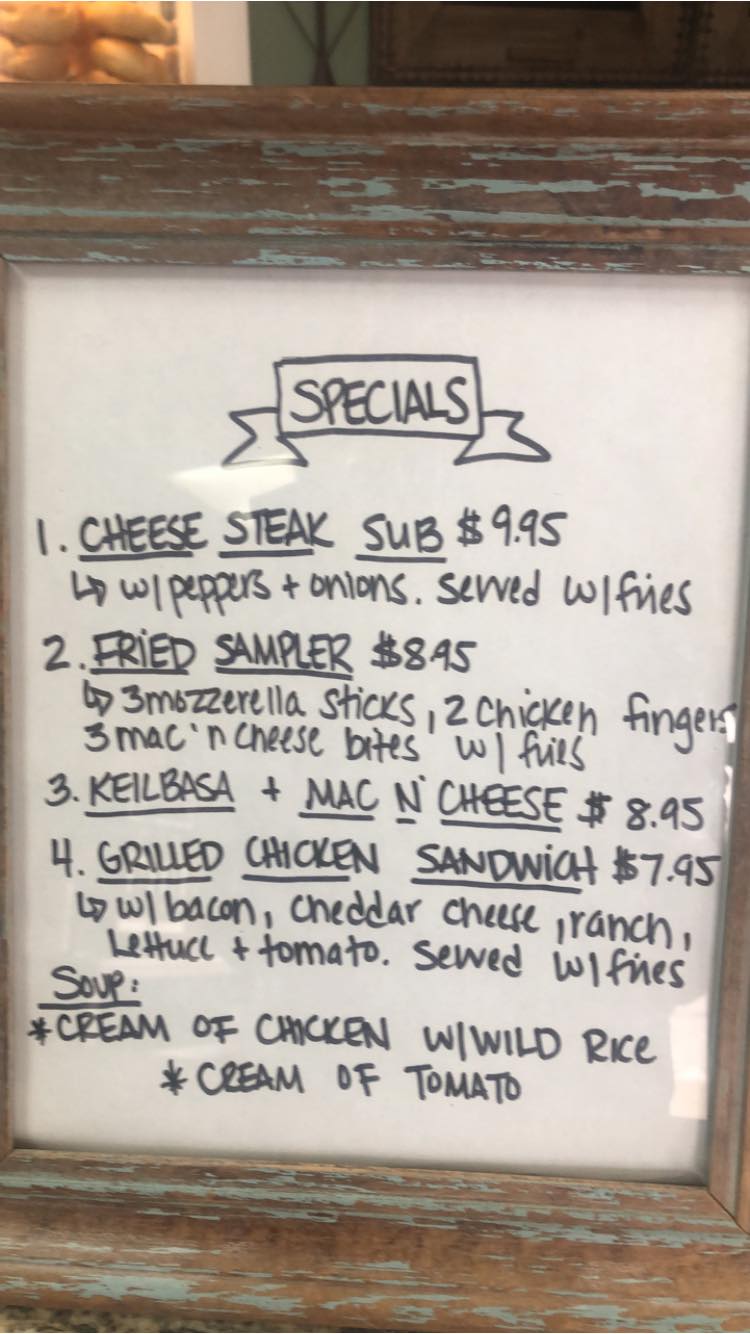 SPECIALS
1. CHEESE STEAK SUB $9.95
↳ w/peppers + onions. Served w/fries
2. FRiED SAMPLER $8.95
↳ 3mozzerella sticks, 2 chicken fingers
3 mac 'n cheese bites w/ fries
3. KEILBASA + MAC N' CHEESE $ 8.95
4. GRILLED CHICKEN SANDWiCH $7.95
↳ w/ bacon, cheddar cheese, ranch,
Lettuce + tomato. Served w/ fries
Soup:
*CREAM OF CHICKEN W/WILD RicE
* CREAM OF TOMATO